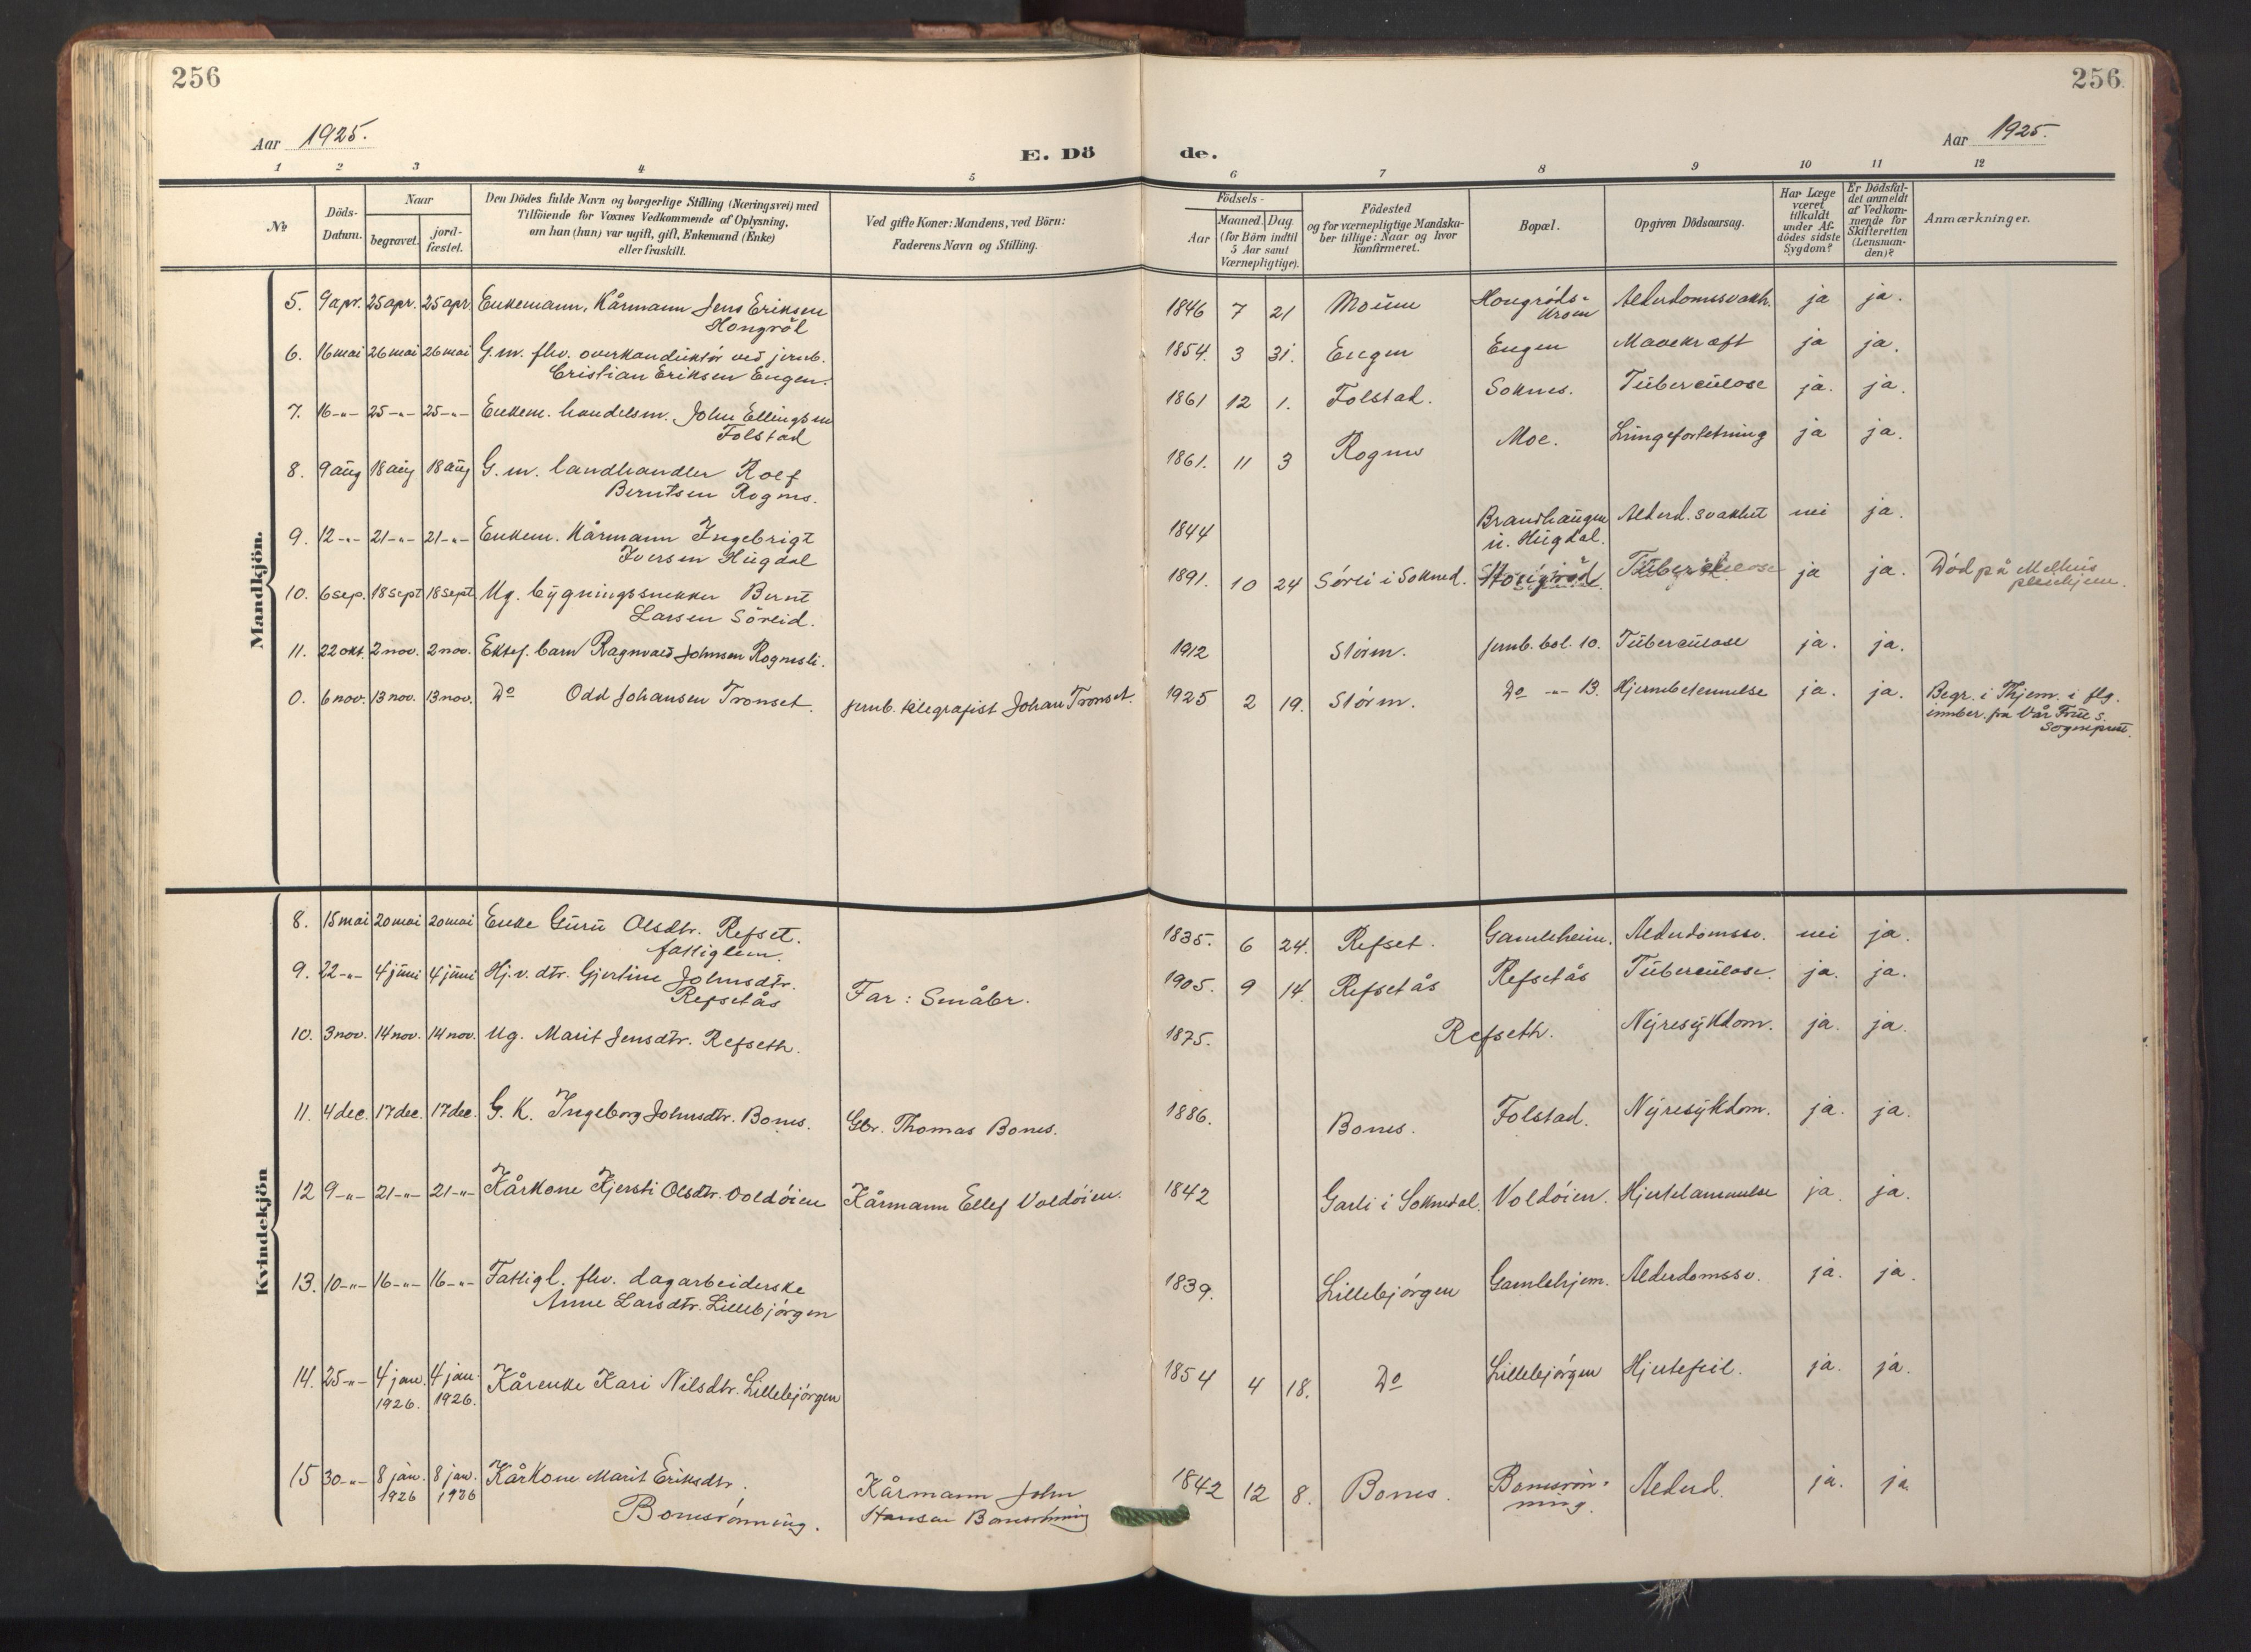 256
256
Aar 1925.
Aar 1925.
E. Dö de.
1 2 3 4 5 6 7 8 9 10 11 12
No
Döds-
Datum.
Naar
begravet.
jord-
fæstet.
Den Dödes fulde Navn og borgerlige Stilling (Næringsvei) med
Tilföiende for Voxnes Vedkommende af Oplysning,
om han (hun) var ugift, gift, Enkemand (Enke)
eller fraskilt.
Ved gifte Koner: Mandens, ved Börn:
Faderens Navn og Stilling.
Födsels-
Aar
Maaned. Dag.
(for Börn indtil
5 Aar samt
Værnepligtige).
Födested
og for værnepligtige Mandska-
ber tillige: Naar og hvor
konfirmeret.
Bopæl.
Opgiven Dödsaarsag.
Har Læge
været
tilkaldt
under Af-
dödes sidste
Sygdom?
Er Dödsfal-
det anmeldt
af Vedkom-
mende for
Skifteretten
(Lensman-
den)?
Anmærkninger.
Mandkjön.
5. 9 apr. 25 apr. 25 apr. Enkemann, Kårmann Jens Eriksen
Hongröl
1846 7 21 Moum Hongröds-
kroen
Alderdomssvakh. ja ja.
6. 16 mai 26 mai 26 mai G.m. fhv. overkonduktör ved jernb.
Cristian Eriksen Engen.
1854. 3 31. Engen Engen Mavekræft ja ja.
7. 16-"- 25-"- 25-"- Enkem. handelsm. John Ellingsen
Folstad
1861 12 1. Folstad. Soknes. Tuberculose ja. ja.
8. 9 aug 18 aug 18 aug G. m. landhandler Rolf
Berntsen Rognes.
1861. 11 3 Rognes Moe. Lungefortetning ja ja.
9. 12-"- 21-"- 21-"- Enkem. Kårmann Ingebrigt
Iversen Hugdal
1844 Brandhaugen
u. Hugdal.
Alderd. svakhet nei ja.
10. 6 sep. 18 sept 18 sept Ug. bygningssnekker Bernt
Larsen Söreid.
1891. 10 24 Sörei i Sokned. Tuberculose ja ja. Död på Melhus
pleiehjem.
11. 22 okt. 2 nov. 2 nov. Ektef. barn Ragnvald Johnsen Rognesli.
1912 Stören. jernb. bol. 10. Tuberculose ja. ja.
0. 6 nov. 13 nov. 13 nov. Do Odd Johansen Tronset. jernb. telegrafist Johan Tronset.
1925 2 19. Stören. Do -"- 13. Hjernebetennelse ja. ja. Begr. i Thjem. i flg.
innber. fra Vår Frue s.
Sogneprest.
Kvindekjön
8. 15 mai 20 mai 20 mai Enke Guru Olsdtr. Refset.
fattiglem.
1835. 6 24. Refset. Gamleheim. Alderdomssv. nei ja.
9. 22-"- 4 juni 4 juni Hj.v. dtr. Gjertine Johnsdtr.
Refsetås
Far: Småbr.
1905. 9 14. Refsetås Refsetås Tuberculose. ja. ja.
10. 3 nov. 14 nov. 14 nov. Ug. Marit Jensdtr. Refseth.
1875. Refseth. Nyresykdom. ja. ja.
11. 4 dec. 17 dec. 17 dec. G. K. Ingeborg Johnsdtr. Bones. Gbr. Thomas Bones.
1886. Bones. Folstad. Nyresykdom. ja. ja.
12 9-"- 21-"- 21-"- Kårkone Kjersti Olsdtr. Voldöien Kårmann Ellef Voldöien.
1842 Garli i Soknedal. Voldöien. Hjertelammelse ja. ja.
13. 10-"- 16-"- 16-"- Fattigl. fhv. dagarbeiderske
Anne Larsdtr. Lillebjörgen
1839. Lillebjörgen Gamlehjem. Alderdomssv. ja. ja.
14. 25-"- 4 jan. 4 jan.
1926. 1926.
Kårenke Kari Nilsdtr. Lillebjörgen
1854 4 18. Do Lillebjörgen Hjertefeil. ja. ja.
15 30-"- 8 jan. 8 jan.
1926 1926
Kårkone Marit Eriksdtr.
Bonesrönning.
Kårmann John
Hansen Bonesrönning
1842 12 8. Bones. Bonesrön-
ning.
Alderd. ja. ja.